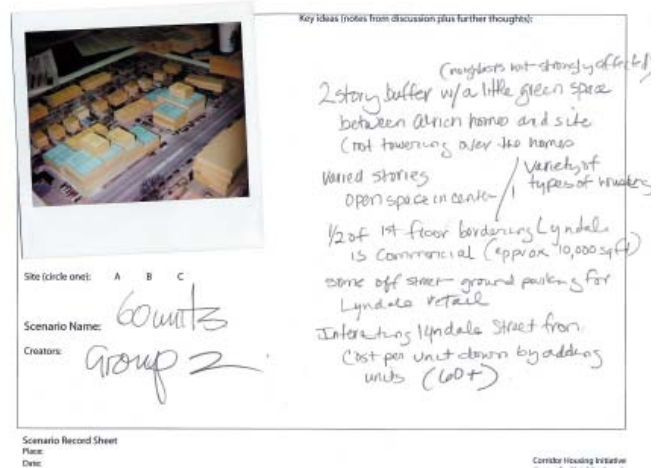 Key ideas (notes from discussion plus further thoughts):
(neighbors not strongly affected)
2 story buffer w/a little green space
between Alrich homes and site
(not towering over the homes
varied stories
open space in center
Variety of
types of housing
1/2 of 1st floor bordering Lyndale
is commercial (approx 10,000 sqft)
some off street ground parking for
Lyndale retail
Interesting lyndale Street front
Cost per unit down by adding
units (60+)
Site (circle one): A B C
Scenario Name: 60 units
Creators: Group 2
Scenario Record Sheet
Place:
Date:
Corridor Housing Initiative